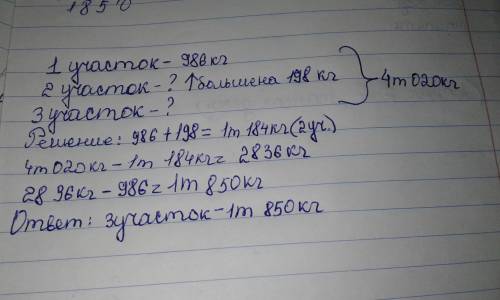 1850
1 участок - 986 кг
2 участок - ? ↑ большена 198 кг } 4т 020кг
3 участок - ?
Решение: 986 + 198 = 1т 184кг (2уч.)
4т 020кг - 1т 184кг = 2836 кг
2896кг - 986 = 1т 850кг
Ответ: 3участок - 1т 850кг